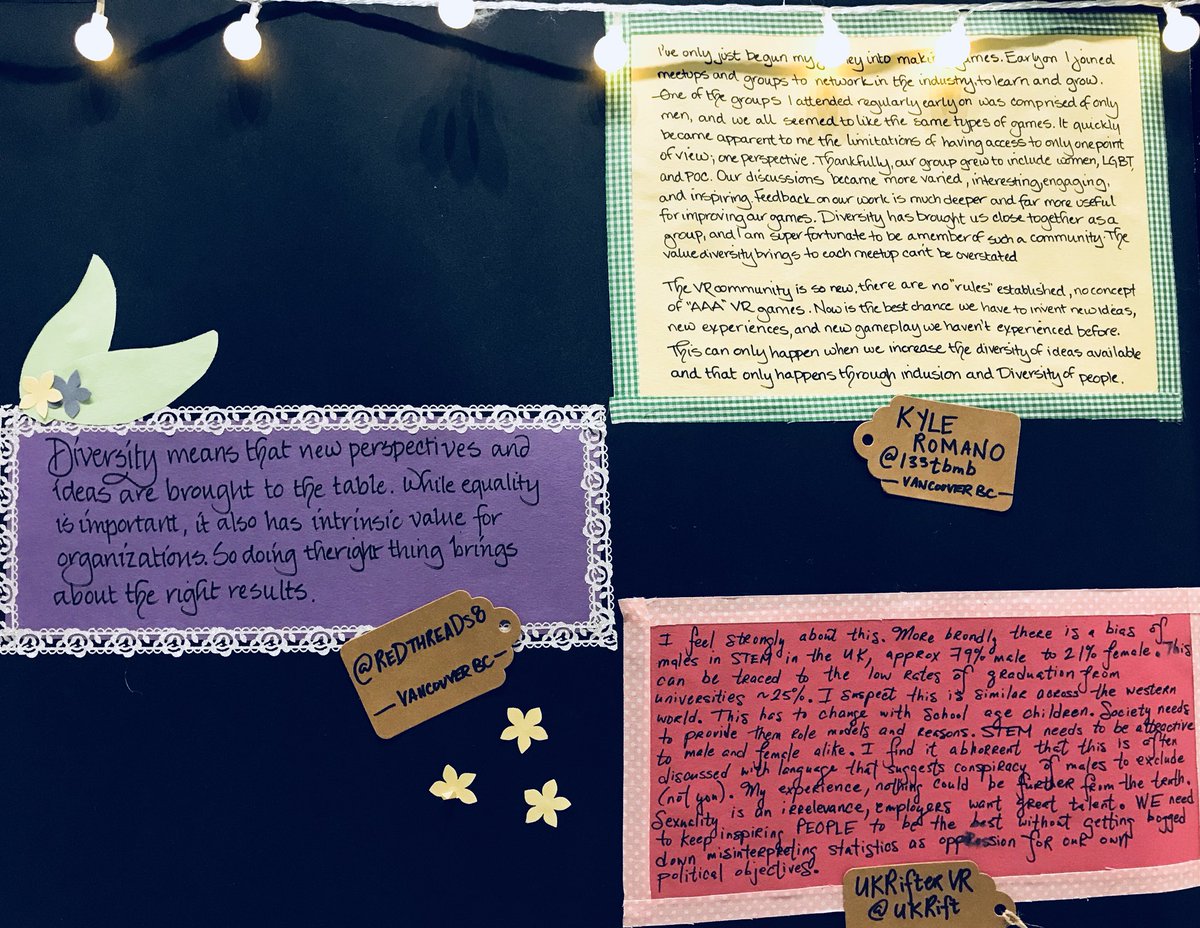 I've only just begun my journey into making games. Early on I joined
meetups and groups to network in the industry, to learn and grow.
One of the groups I attended regularly early on was comprised of only
men, and we all seemed to like the same types of games. It quickly
became apparent to me the limitations of having access to only one point
of view; one perspective. Thankfully, our group grew to include women, LGBT,
and POC. Our discussions became more varied, interesting, engaging,
and inspiring. Feedback on our work is much deeper and far more useful
for improving our games. Diversity has brought us close together as a
group, and I am super fortunate to be a member of such a community. The
value diversity brings to each meetup can't be overstated
The VR community is so new, there are no "rules" established, no concept
of "AAA" VR games. Now is the best chance we have to invent new ideas,
new experiences, and new gameplay we haven't experienced before.
This can only happen when we increase the diversity of ideas available
and that only happens through inclusion and Diversity of people.
KYLE
ROMANO
@135tbmb
—VANCOUVER BC—
Diversity means that new perspectives and
ideas are brought to the table. While equality
is important, it also has intrinsic value for
organizations. So doing the right thing brings
about the right results.
@REDTHREADS8
—VANCOUVER BC—
I feel strongly about this. More brondly there is a bias of
males in STEM in the UK, approx 79% male to 21% female. This
can be traced to the low rates of graduation from
universities ~25%. I suspect this is similar across the western
world. This has to change with school age children. Society needs
to provide them role models and reasons. STEM needs to be attractive
to male and female alike. I find it abhorrent that this is often
discussed with language that suggests conspiracy of males to exclude
(not you). My experience, nothing could be further from the truth.
Sexuality is an irrelevance, employers want great talent. WE need
to keep inspiring PEOPLE to be the best without getting bogged
down misinterpreting statistics as oppression for our own
political objectives.
UKRifter VR
@UKRift